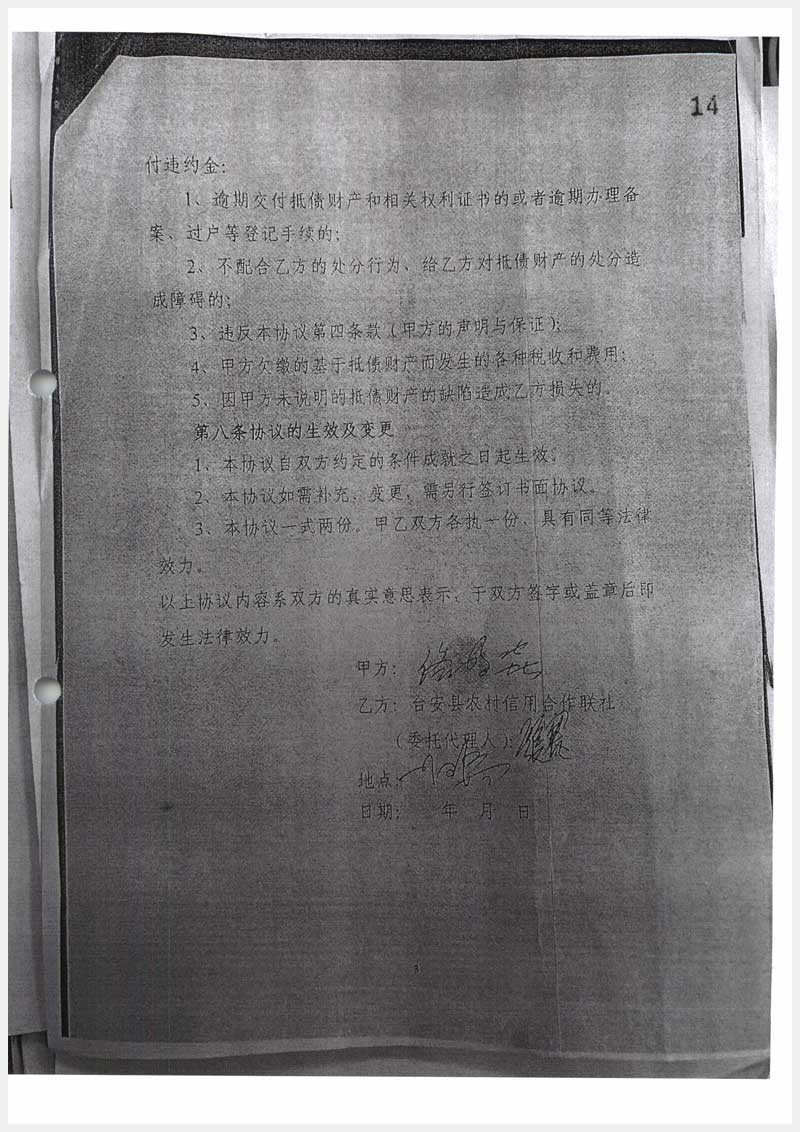 14
付违约金:
1、逾期交付抵债财产和相关权利证书的或者逾期办理备
案、过户等登记手续的;
2、不配合乙方的处分行为、给乙方对抵债财产的处分造
成障碍的;
3、违反本协议第四条款(甲方的声明与保证);
4、甲方欠缴的基于抵债财产而发生的各种税收和费用;
5、因甲方未说明的抵债财产的缺陷造成乙方损失的。
第八条协议的生效及变更
1、本协议自双方约定的条件成就之日起生效。
2、本协议如需补充、变更,需另行签订书面协议。
3、本协议一式两份。甲乙双方各执一份、具有同等法律
效力。
以上协议内容系双方的真实意思表示、于双方签字或盖章后即
发生法律效力。
甲方:
乙方:台安县农村信用合作联社
(委托代理人):
地点:
日期: 年 月 日
3